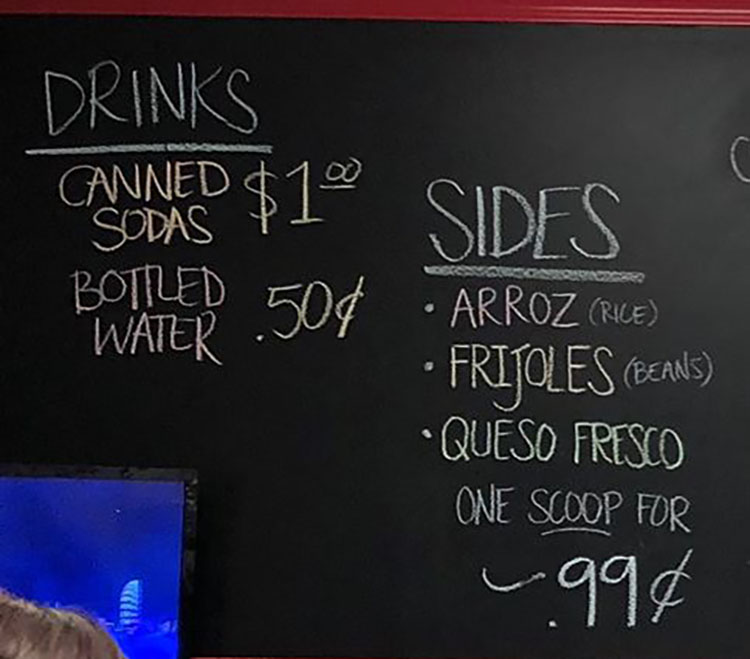 DRINKS
CANNED $1.00
SODAS
BOTTLED .50¢
WATER
SIDES
• ARROZ (RICE)
• FRIJOLES (BEANS)
• QUESO FRESCO
ONE SCOOP FOR
.99¢